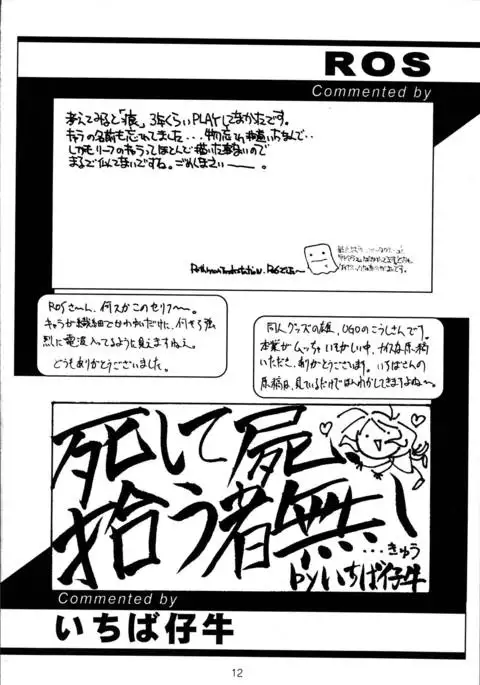 ROS
Commented by
考えてみると「痕」3年くらいPLAYしてなかたです。
キャラの名前も忘れてました・・・
しかもリーフのキャラってほとんど描いた事ないので
まるで似てないですね。ごめしなさい———。
ROSさーん、何スかこのセリフ〜。
キャラが繊細でかわいいだけに、何やら強
烈に電波入ってるように見えますねえ。
どうもありがとうございました。
同人グッズの雄、OGOのこうしさんです。
本業がムッチャいそがしい中、ナイスな原稿
いただき、ありがとうございます。いちばさんの
原稿は、見ているだけでほんわかしてきますよね〜
死して屍
拾う者無し
・・・きゅう
byいちば仔牛
Commented by
いちば仔牛
12